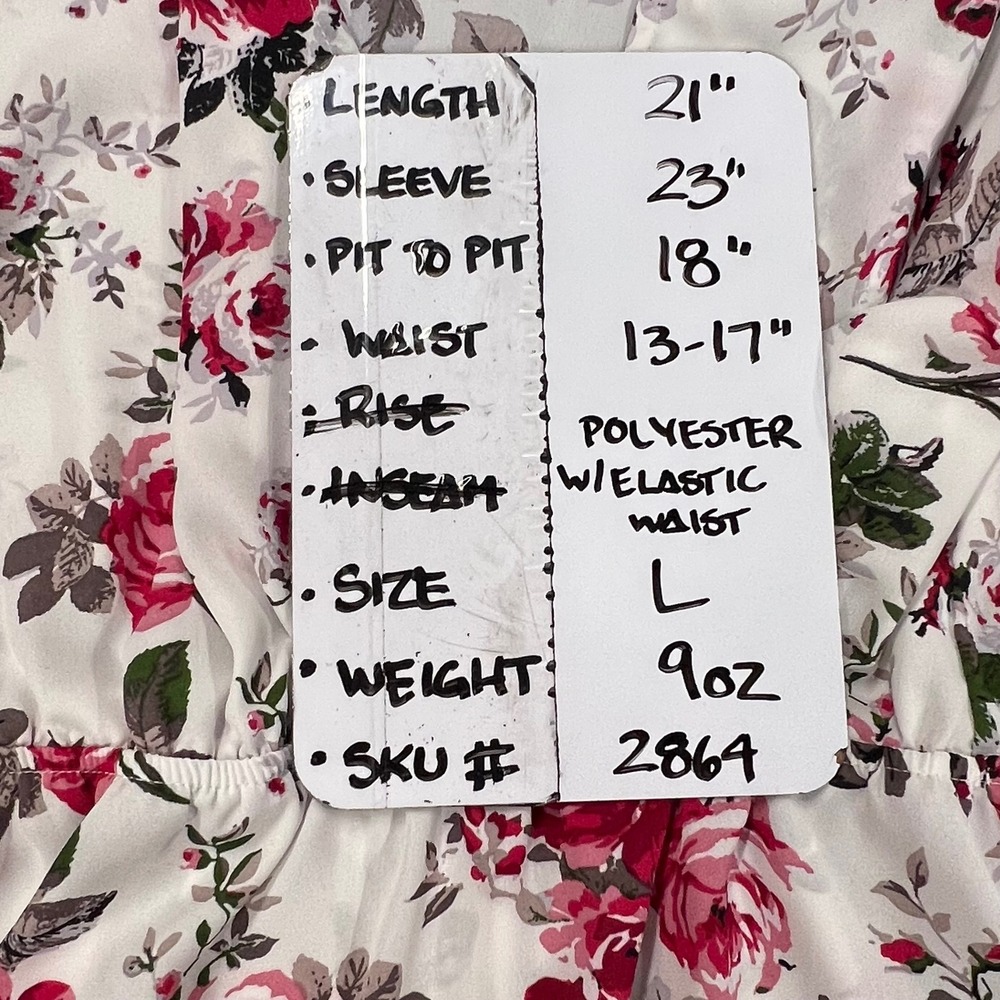 LENGTH 21"
• SLEEVE 23"
• PIT TO PIT 18"
• WAIST 13-17"
• RISE
POLYESTER
• INSEAM W/ELASTIC
WAIST
• SIZE L
• WEIGHT 9oz
• SKU # 2864